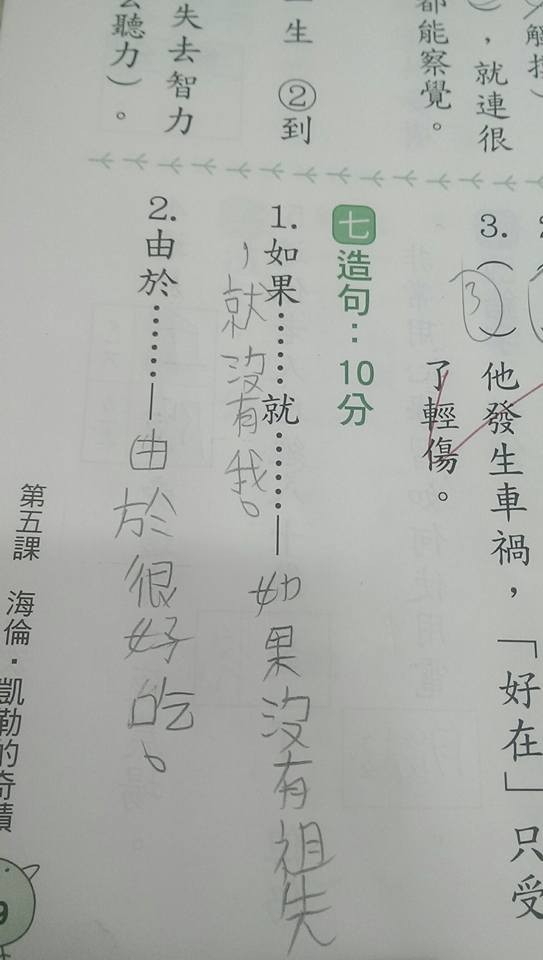 觸摸）
），就連很
都能察覺。
一生　②到
失去智力
去聽力）。
3.（3）他發生車禍，「好在」只受
了輕傷。
七 造句：10分
1.如果……就……—如果沒有祖失
，就沒有我。
2.由於……—由於很好吃。
第五課　海倫．凱勒的奇蹟
9